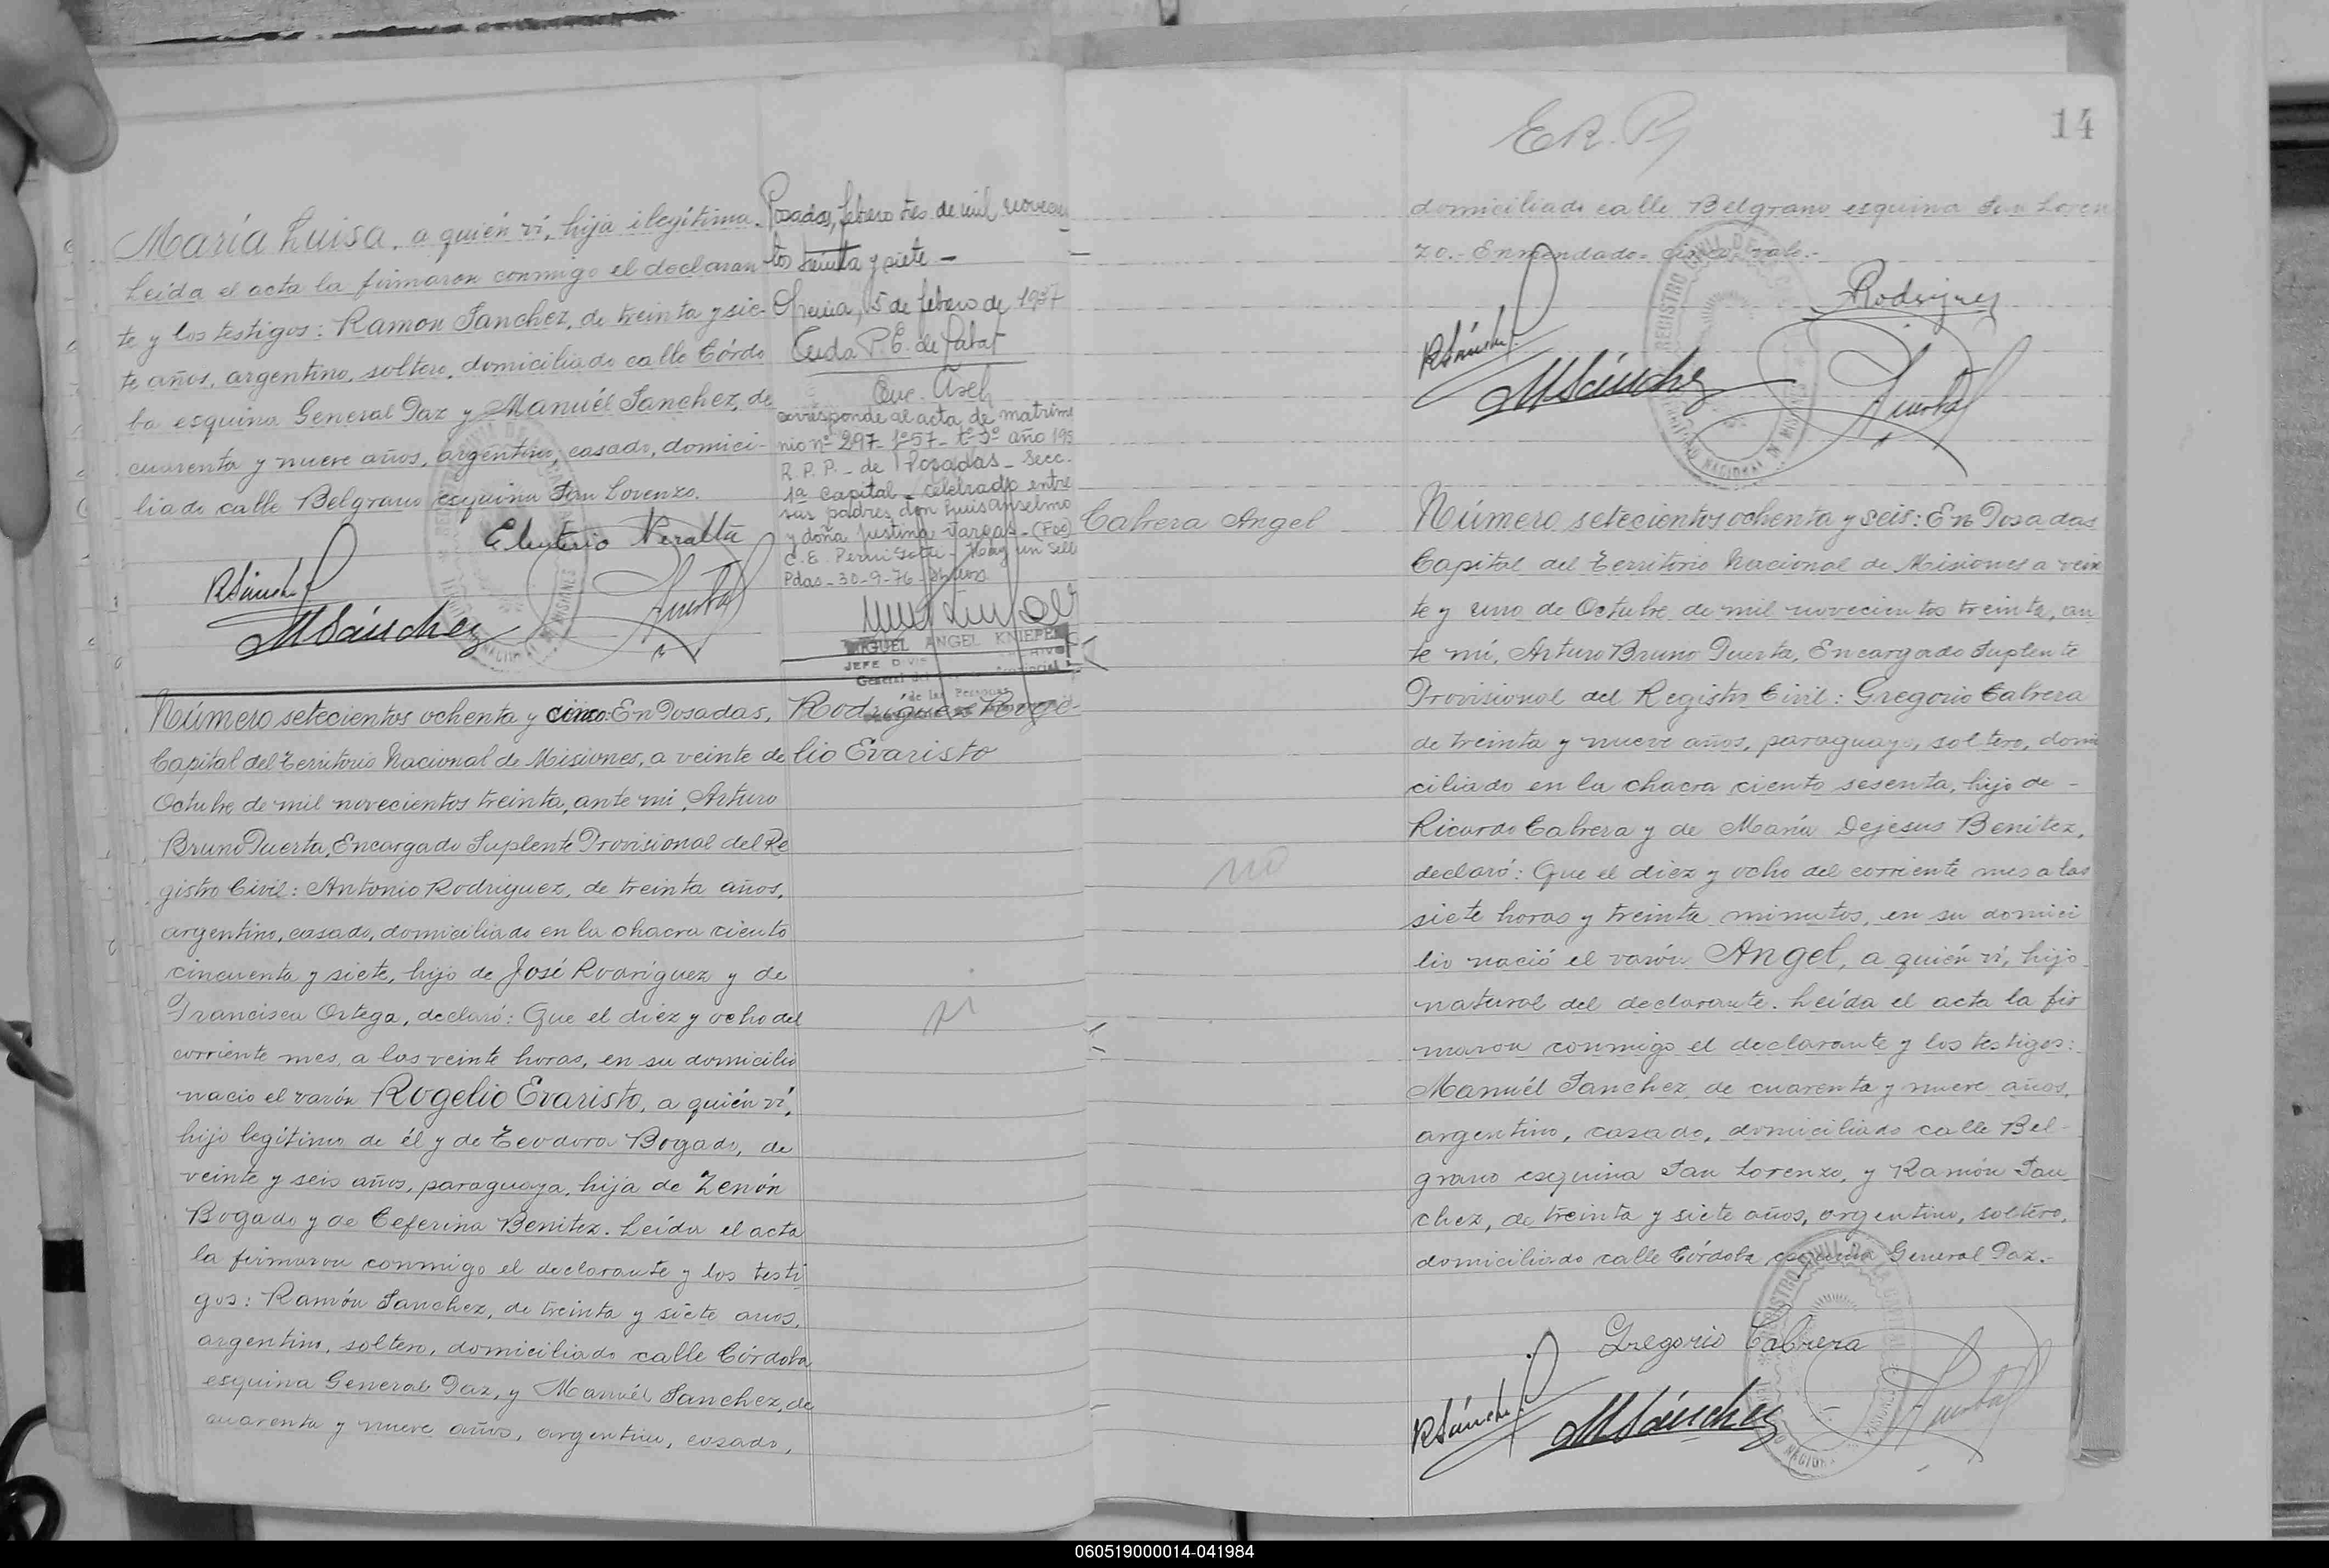 María Luisa, a quién ví, hija ilegítima.
Leída el acta la firmaron conmigo el declaran
te y los testigos: Ramon Sanchez, de treinta y sie-
te años, argentino, soltero, domiciliado calle Córdo
ba esquina General Paz y Manuél Sanchez, de
cuarenta y nueve años, argentino, casado, domici-
liado calle Belgrano esquina San Lorenzo.
Eleuterio Peralta
RSánchez
MSánchez
Posadas, febrero tres de mil novecien
tos treinta y siete —
5 de febrero de 1937
corresponde al acta de matrimo
nio nº 297- fº 57- tº 3º año 195
R.P.P. - de Posadas - Secc.
1ª Capital - celebrado entre
sus padres don Luis Anselmo
y doña Justina Vargas - (Fdo)
Hay un sello
Pdas - 30-9-76
MIGUEL ANGEL KNIEPE
JEFE DIVI
General del
Provincial
de las Personas
Número setecientos ochenta y cinco: En Posadas,
Capital del Territorio Nacional de Misiones, a veinte de
Octubre de mil novecientos treinta, ante mí, Arturo
Bruno Puerta, Encargado Suplente Provisional del Re
gistro Civil: Antonio Rodriguez, de treinta años,
argentino, casado, domiciliado en la chacra ciento
cincuenta y siete, hijo de José Rodriguez y de
Francisca Ortega, declaró: Que el diez y ocho del
corriente mes, a las veinte horas, en su domicilio
nació el varón Rogelio Evaristo, a quién ví,
hijo legítimo de él y de Teodora Bogado, de
veinte y seis años, paraguaya, hija de Zenón
Bogado y de Ceferina Benitez. Leída el acta
la firmaron conmigo el declarante y los testi
gos: Ramón Sanchez, de treinta y siete anos,
argentino, soltero, domiciliado calle Córdoba
esquina General Paz, y Manuél Sanchez, de
cuarenta y nueve años, argentino, casado,
Rodríguez Roge-
lio Evaristo
E.R.P.
14
domiciliado calle Belgrano esquina San Loren
zo.- Enmendado= cinco= vale.-
Rodriguez
RSánchez
MSánchez
Puerta
Cabrera Angel
no
Número setecientos ochenta y seis: En Posadas
Capital del Territorio Nacional de Misiones a vein
te y uno de Octubre de mil novecientos treinta, an
te mí, Arturo Bruno Puerta, Encargado Suplente
Provisional del Registro Civil: Gregorio Cabrera
de treinta y nueve años, paraguayo, soltero, domi
ciliado en la chacra ciento sesenta, hijo de -
Ricardo Cabrera y de María Dejesus Benitez,
declaró: Que el diez y ocho del corriente mes a las
siete horas y treinta minutos, en su domici
lio nació el varón Angel, a quién ví, hijo
natural del declarante. Leída el acta la fir
maron conmigo el declarante y los testigos:
Manuél Sanchez de cuarenta y nueve años,
argentino, casado, domiciliado calle Bel-
grano esquina San Lorenzo, y Ramón San
chez, de treinta y siete años, argentino, soltero,
domiciliado calle Córdoba esquina General Paz.-
Gregorio Cabrera
RSánchez
MSánchez
Puerta
060519000014-041984